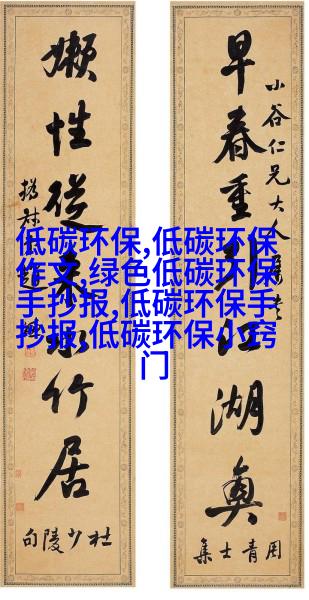 早春重引江湖興
小谷仁兄大人
周青士集
嬾性從來水竹居
杜少陵句
撝叔趙
低碳环保,低碳环保
作文,绿色低碳环保
手抄报,低碳环保手
抄报,低碳环保小窍
门